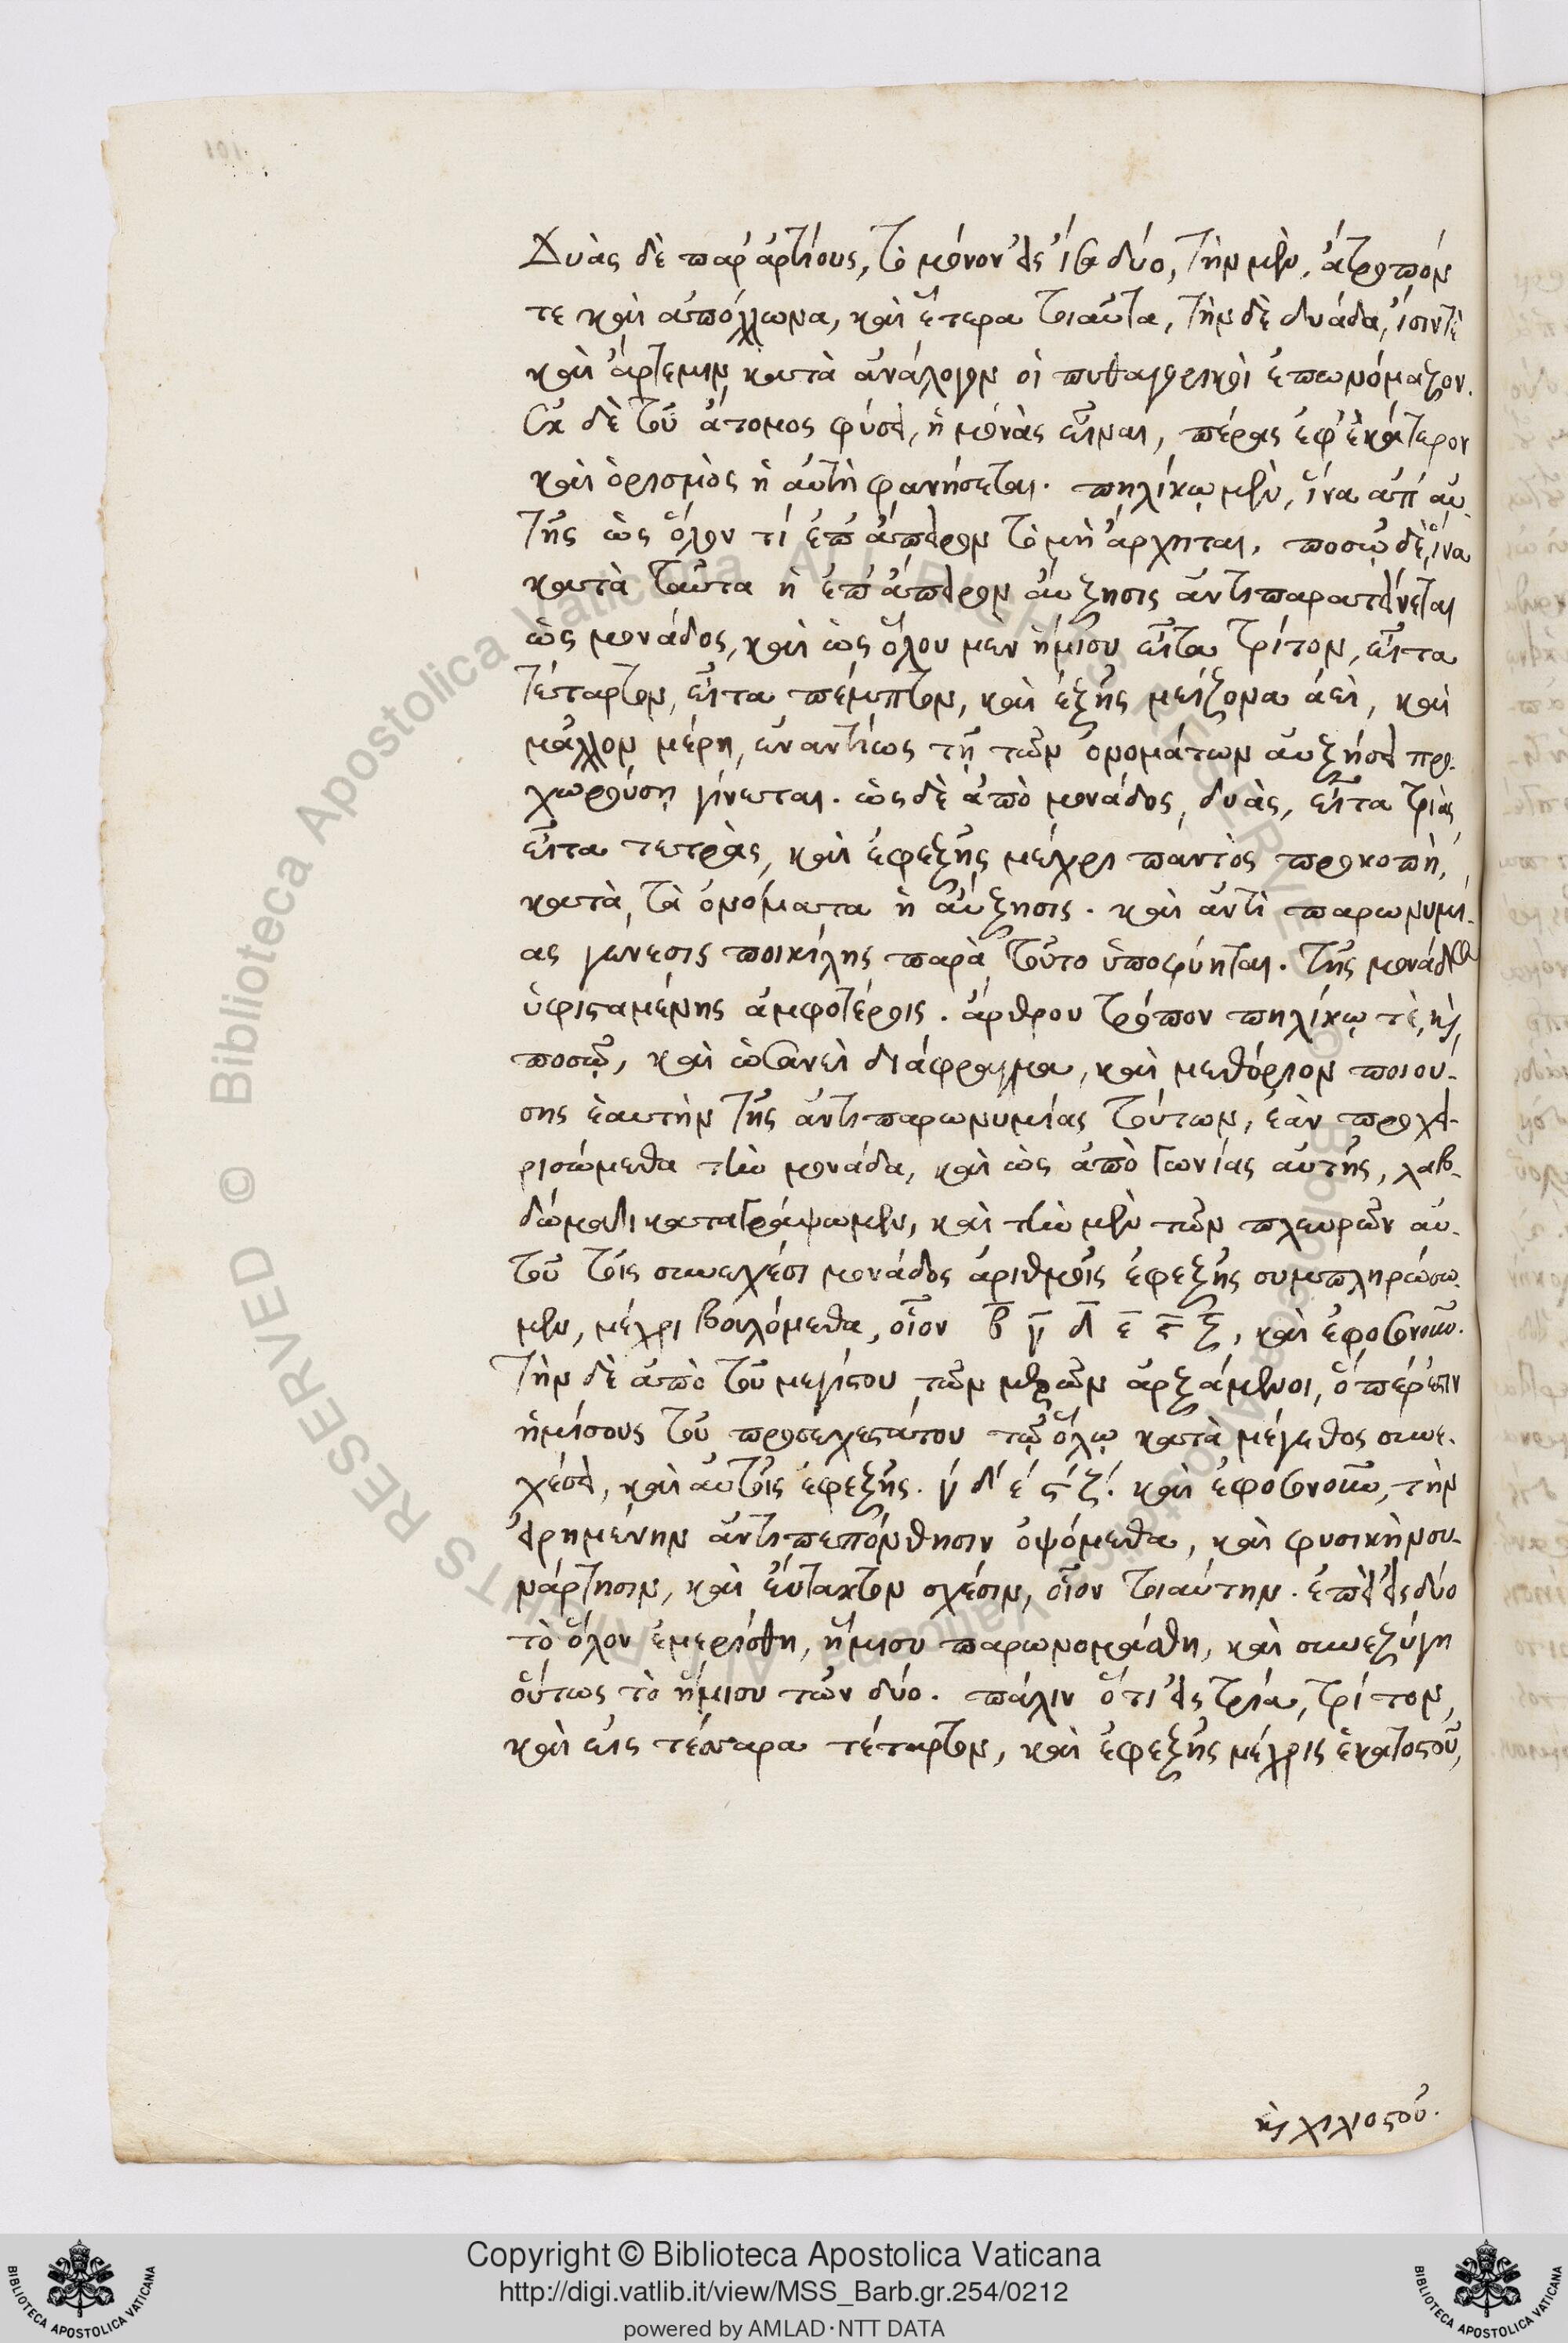 Δυὰς δὲ παρ' ἀρτίους, τὸ μόνον εἰς ἴσα δύο, τὴν μὲν, ἄτροπόν
τε καὶ ἀπόλλωνα, καὶ ἕτερα τοιαῦτα, τὴν δὲ δυάδα, ἴσιν τὲ
καὶ ἄρτεμιν κατὰ ἀνάλογον οἱ πυθαγορικοὶ ἐπωνόμαζον.
Ἐκ δὲ τοῦ ἄτομος φύσει, ἡ μονὰς εἶναι, πέρας ἐφ' ἑκάτερον
καὶ ὁρισμὸς ἡ αὐτὴ φανήσεται. πηλίκῳ μὲν, ἵνα ἀπ' αὐ-
τῆς ὡς ὅλον τί ἐπ' ἄπειρον τὸ μὴ ἄρχηται, ποσῷ δὲ, ἵνα
κατὰ ταῦτα ἡ ἐπ' ἄπειρον αὔξησις ἀντιπαρατείνεται
ὡς μονάδος, καὶ ὡς ὅλου μὲν ἥμισυ εἶτα τρίτον, εἶτα
τέταρτον, εἶτα πέμπτον, καὶ ἑξῆς μείζονα ἀεὶ, καὶ
μᾶλλον μέρη, ἐναντίως τῇ τῶν ὀνομάτων αὐξήσει προ-
χωρούσῃ γίνεται. ὡς δὲ ἀπὸ μονάδος, δυὰς, εἶτα τριὰς
εἶτα τετρὰς, καὶ ἐφεξῆς μέχρι παντὸς προκοπὴ,
κατὰ τὰ ὀνόματα ἡ αὔξησις. καὶ ἀντὶ παρωνυμί-
ας γένεσις ποικίλης παρὰ τοῦτο ὑποφύηται. τῆς μονάδος
ὑφισταμένης ἀμφοτέροις. ἄρθρου τρόπον πηλίκῳ τὲ, καὶ
ποσῷ, καὶ ὡσανεὶ διάφραγμα, καὶ μεθόριον ποιού-
σης ἑαυτὴν τῆς ἀντιπαρωνυμίας τούτων, ἐὰν προχει-
ρισώμεθα τὴν μονάδα, καὶ ὡς ἀπὸ γωνίας αὐτῆς, λαβ-
δώματι καταγράψωμεν, καὶ τὴν μὲν τῶν πλευρῶν αὐ-
τοῦ τοῖς συνεχέσι μονάδος ἀριθμοῖς ἐφεξῆς συμπληρώσω-
μεν, μέχρι βουλόμεθα, οἷον β γ δ ε ϛ ζ, καὶ ἐφοσονοῦν.
τὴν δὲ ἀπὸ τοῦ μεγίστου τῶν μερῶν ἀρξάμενοι, ὅπέρ ἐστιν
ἡμίσους τοῦ προσεχεστάτου τῷ ὅλῳ κατὰ μέγεθος συνε-
χέσει, καὶ αὐτοῖς ἐφεξῆς. γ' δ' ε' ϛ' ζ'. καὶ ἐφοσονοῦν, τὴν
εἰρημένην ἀντιπεπόνθησιν ὀψόμεθα, καὶ φυσικὴν συ-
νάρτησιν, καὶ εὔτακτον σχέσιν, οἷον τοιαύτην. ἐπεὶ εἰς δύο
τὸ ὅλον ἐμερίσθη, ἥμισυ παρωνομάσθη, καὶ συνεζύγη
οὕτως τὸ ἥμισυ τῶν δύο. πάλιν ὅτι εἰς τρία, τρίτον,
καὶ εἰς τέσσαρα τέταρτον, καὶ ἐφεξῆς μέχρις ἑκατοστοῦ,
καὶ χιλιοστοῦ.
Copyright © Biblioteca Apostolica Vaticana
http://digi.vatlib.it/view/MSS_Barb.gr.254/0212
powered by AMLAD·NTT DATA